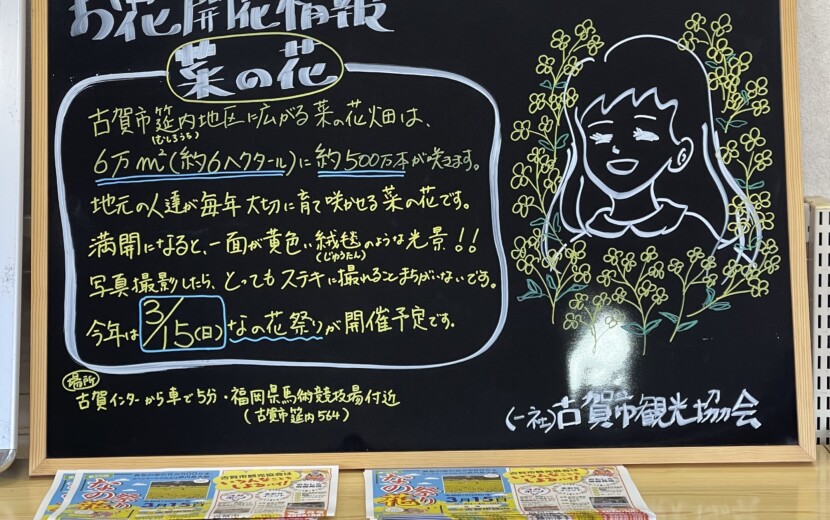 お花開花情報
菜の花
古賀市筵内地区に広がる菜の花畑は、
(むしろうち)
6万m²(約6ヘクタール)に約500万本が咲きます。
地元の人達が毎年大切に育て咲かせる菜の花です。
満開になると、一面が黄色い絨毯のような光景!!
(じゅうたん)
写真撮影したら、とってもステキに撮れることまちがいないです。
今年は3/15(日)なの花祭りが開催予定です。
場所
古賀インターから車で5分・福岡県馬術競技場付近
(古賀市筵内564)
(一社)古賀市観光協会
なの花祭り
古賀市観光協会は
3月15日
なの花祭り
古賀市観光協会は
3月15日